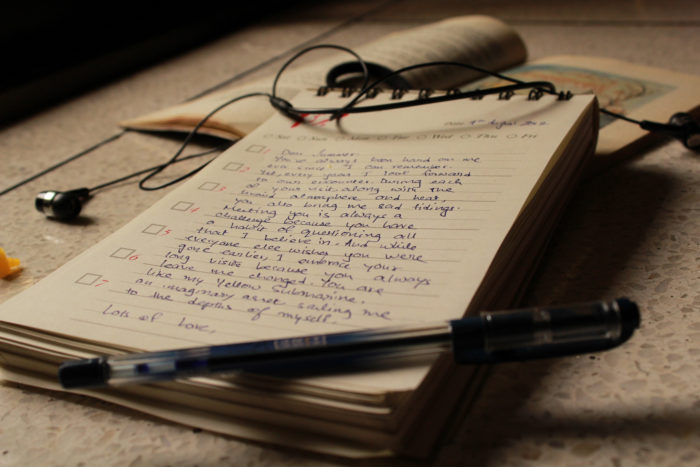 Date
Sat Sun Mon Tue Wed Thu Fri
1 Dear Summer,
You've always been hard on me
2 ever since I can remember.
Yet, every year I look forward
to our encounter. During each
3 of your visit along with the
humid atmosphere and heat,
you also bring me sad tidings.
4 Meeting you is always a
challenge because you have
a habit of questioning all
5 that I believe in. And while
everyone else wishes you were
6 gone earlier, I embrace your
long visits because you always
leave me changed. You are
7 like my Yellow Submarine.
an imaginary asset sailing me
to the depths of myself.
Lots of Love,